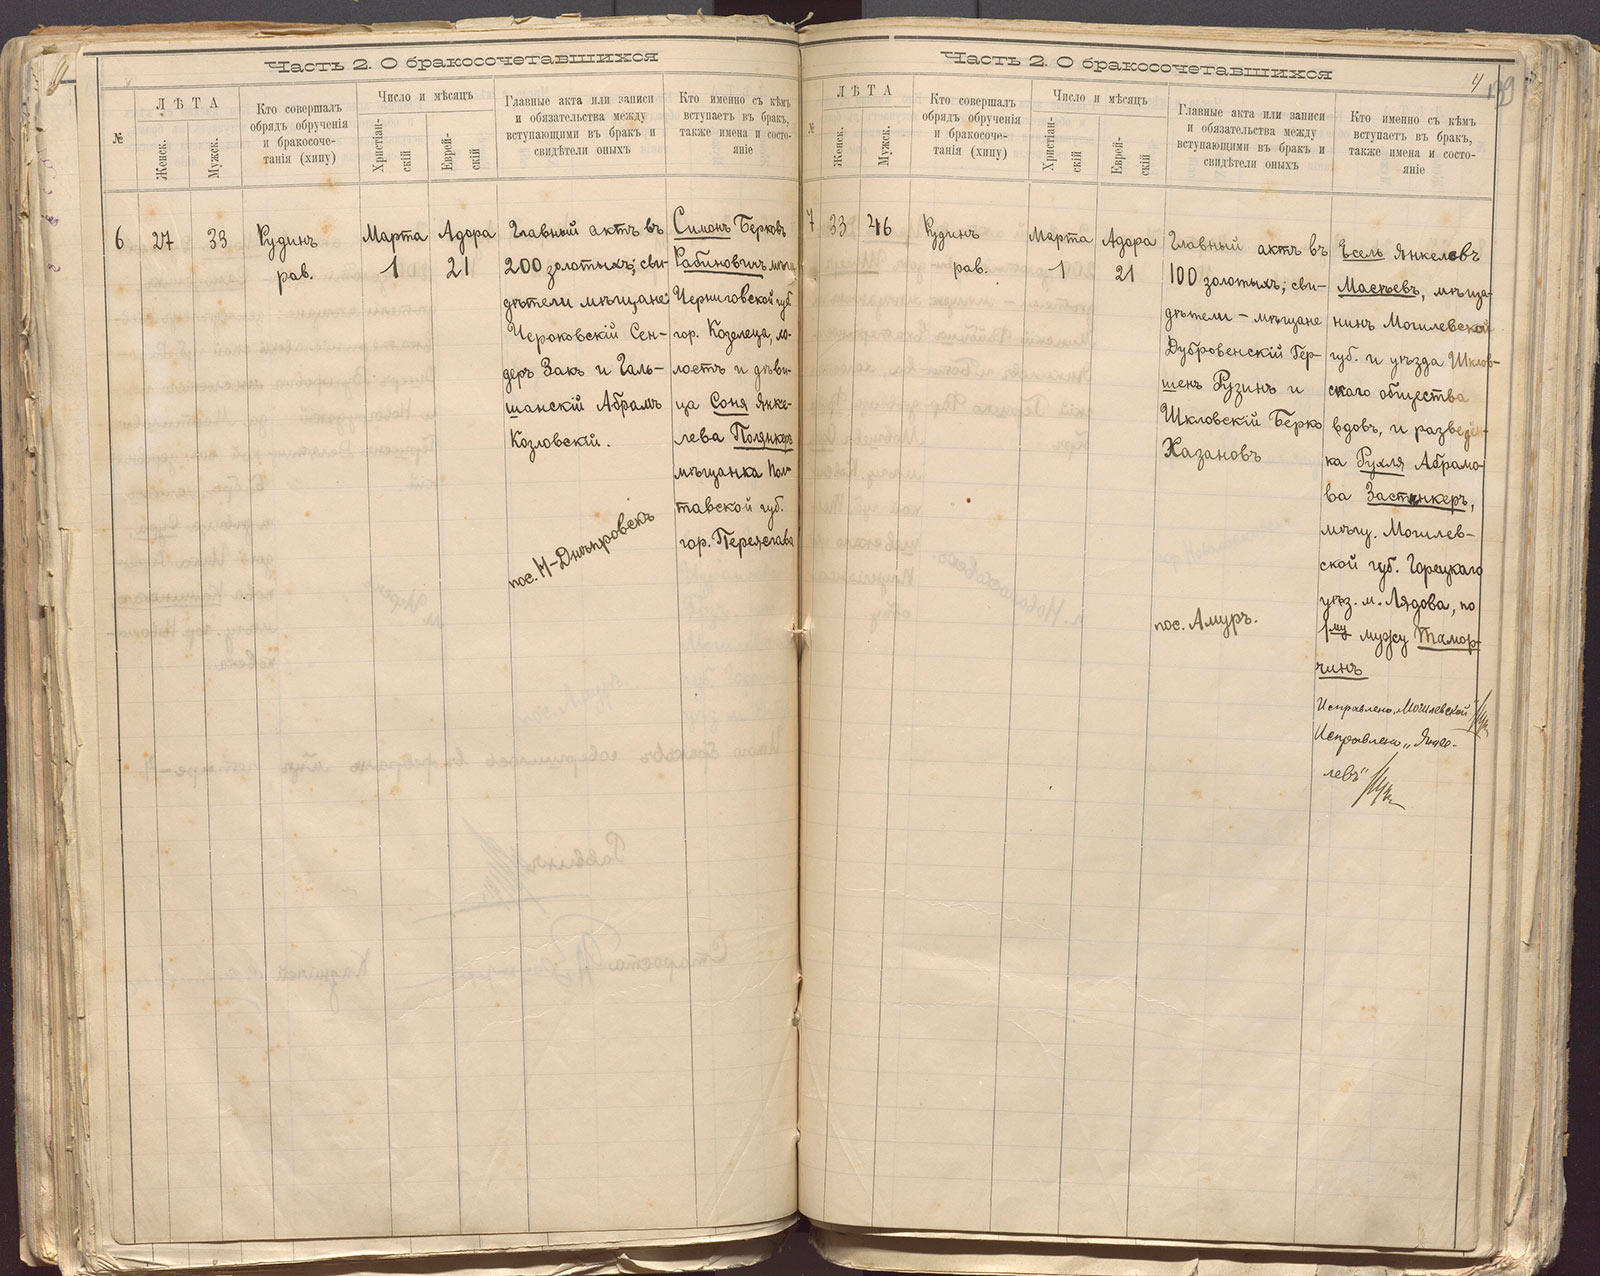 Часть 2. О бракосочетавшихся
№
ЛѢТА
Женск.
Мужск.
Кто совершалъ
обрядъ обрученія
и бракосоче-
танія (хипу)
Число и мѣсяцъ
Христіан-
скій
Еврей-
скій
Главные акта или записи
и обязательства между
вступающими въ бракъ и
свидѣтели оныхъ
Кто именно съ кѣмъ
вступаетъ въ бракъ,
также имена и состо-
яніе
6
27
33
Рудинъ
рав.
Марта
1
Адора
21
Главный актъ въ
200 золотыхъ; сви-
дѣтели мѣщане:
Чероковскій Сен-
деръ Закъ и Галь-
шанскій Абрамъ
Козловскій.
пос. Н-Днѣпровскъ
Симонъ Берковъ
Рабиновичъ мѣщ.
Черниговской губ.
гор. Козелеца, хо-
лостъ и дѣви-
ца Соня Янке-
лева Полянкеръ
мѣщанка Пол-
тавской губ.
гор. Переяслава
Часть 2. О бракосочетавшихся
4
139
№
ЛѢТА
Женск.
Мужск.
Кто совершалъ
обрядъ обрученія
и бракосоче-
танія (хипу)
Число и мѣсяцъ
Христіан-
скій
Еврей-
скій
Главные акта или записи
и обязательства между
вступающими въ бракъ и
свидѣтели оныхъ
Кто именно съ кѣмъ
вступаетъ въ бракъ,
также имена и состо-
яніе
7
33
46
Рудинъ
рав.
Марта
1
Адора
21
Главный актъ въ
100 золотыхъ; сви-
дѣтели – мѣщане
Дубровенскій Гер-
шенъ Рузинъ и
Шкловскій Берко
Хазановъ
пос. Амуръ.
Есель Янкелевъ
Маскевъ, мѣща-
нинъ Могилевской
губ. и уѣзда Шклов-
скаго общества
вдовъ, и разведен-
ка Рухля Абрамо-
ва Застенкеръ,
мѣщ. Могилев-
ской губ. Горецкаго
уѣз. м. Лядова, по
1му мужу Тамор-
чинъ
Исправлено „Могилевской"
Исправлено „Янке-
левъ"